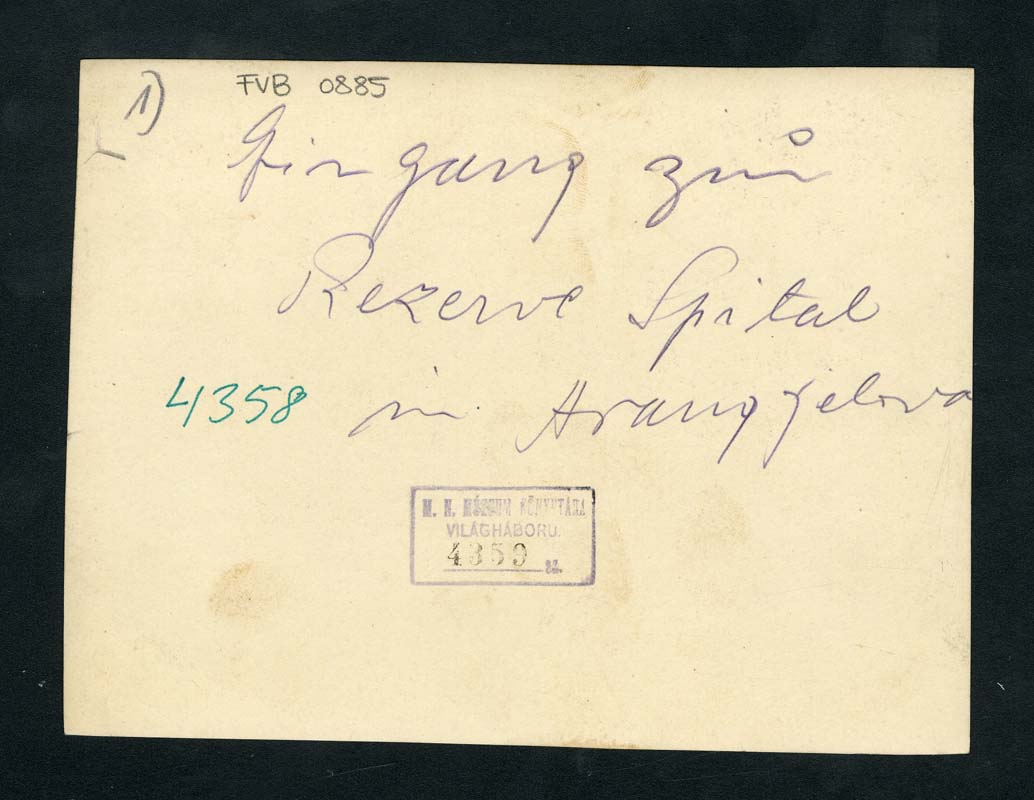 1)
FVB 0885
Eingang zur
Rezerve Spital
4358 in Arangjelova
M. N. MÚZEUM KÖNYVTÁRA
VILÁGHÁBORU.
4359 sz.